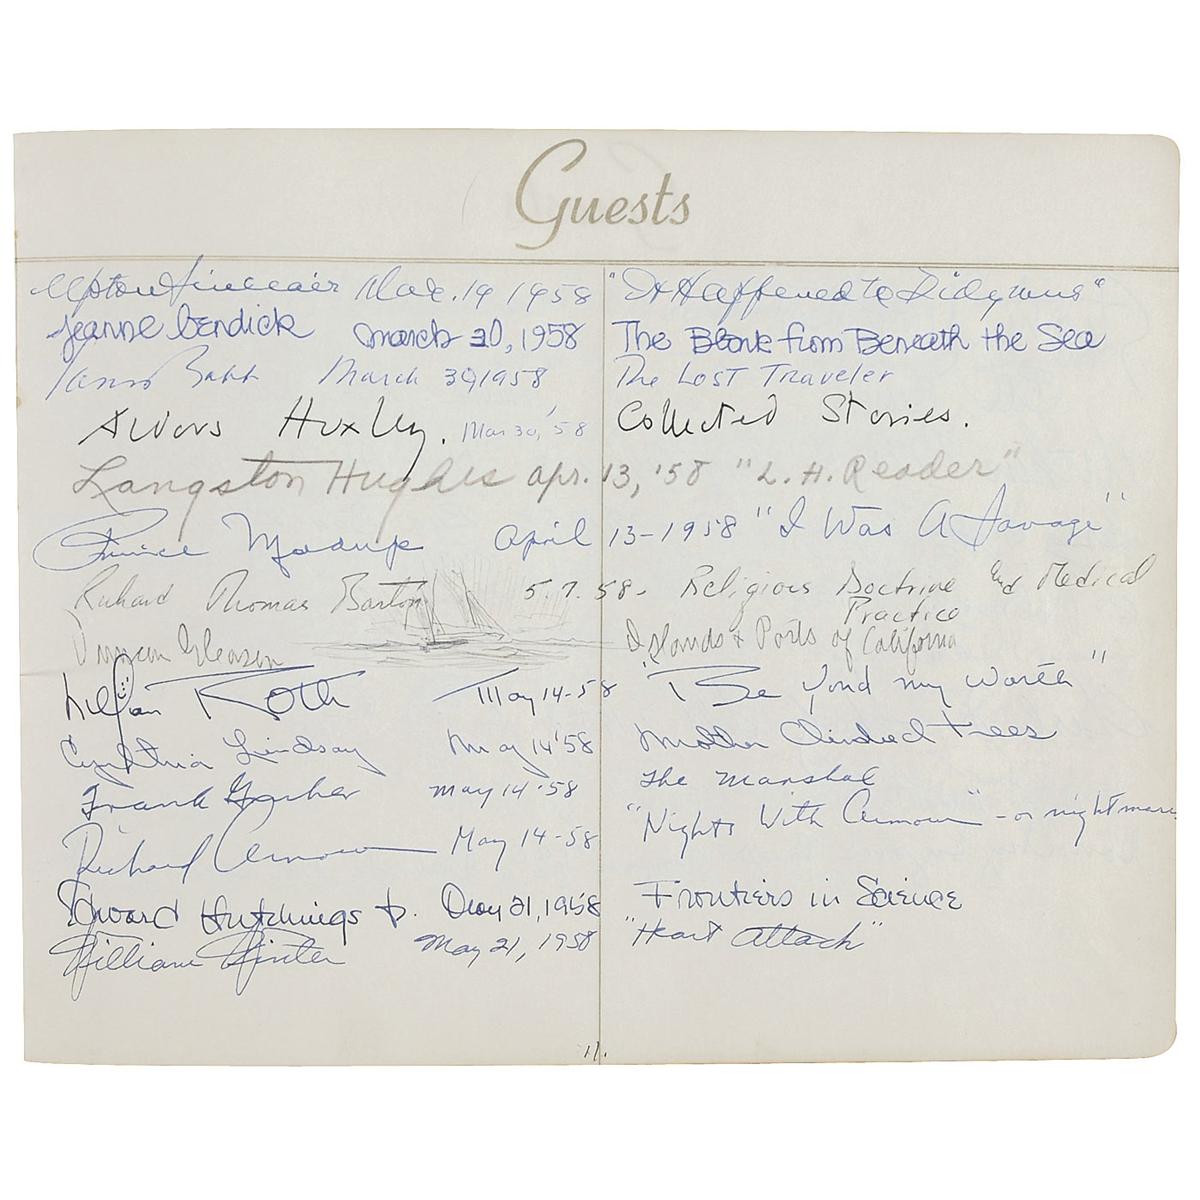 Guests
Upton Sinclair Mar. 19 1958 "It Happened to Didymus"
Jeanne Bendick March 20, 1958 The Blonk from Beneath the Sea
Babb March 30, 1958 The Lost Traveler
Aldous Huxley. Mar 30, '58 Collected Stories.
Langston Hughes apr. 13, '58 "L. H. Reader"
Prince Modupe April 13-1958 "I Was A Savage"
Richard Thomas Barton 5.7.58- Religious Doctrine and Medical
Practice
Duncan Gleason Islands & Ports of California
Lillian Roth May 14-58 "Beyond my worth"
Cynthia Lindsay May 14 '58 Mother Climbed Trees
Frank Gruber May 14-58 The Marshal
Richard Armour May 14-58 "Nights With Armour" - or nightmare
Edward Hutchings Jr. May 21, 1958 Frontiers in Science
William Winter May 21, 1958 "Heart Attack"
11.